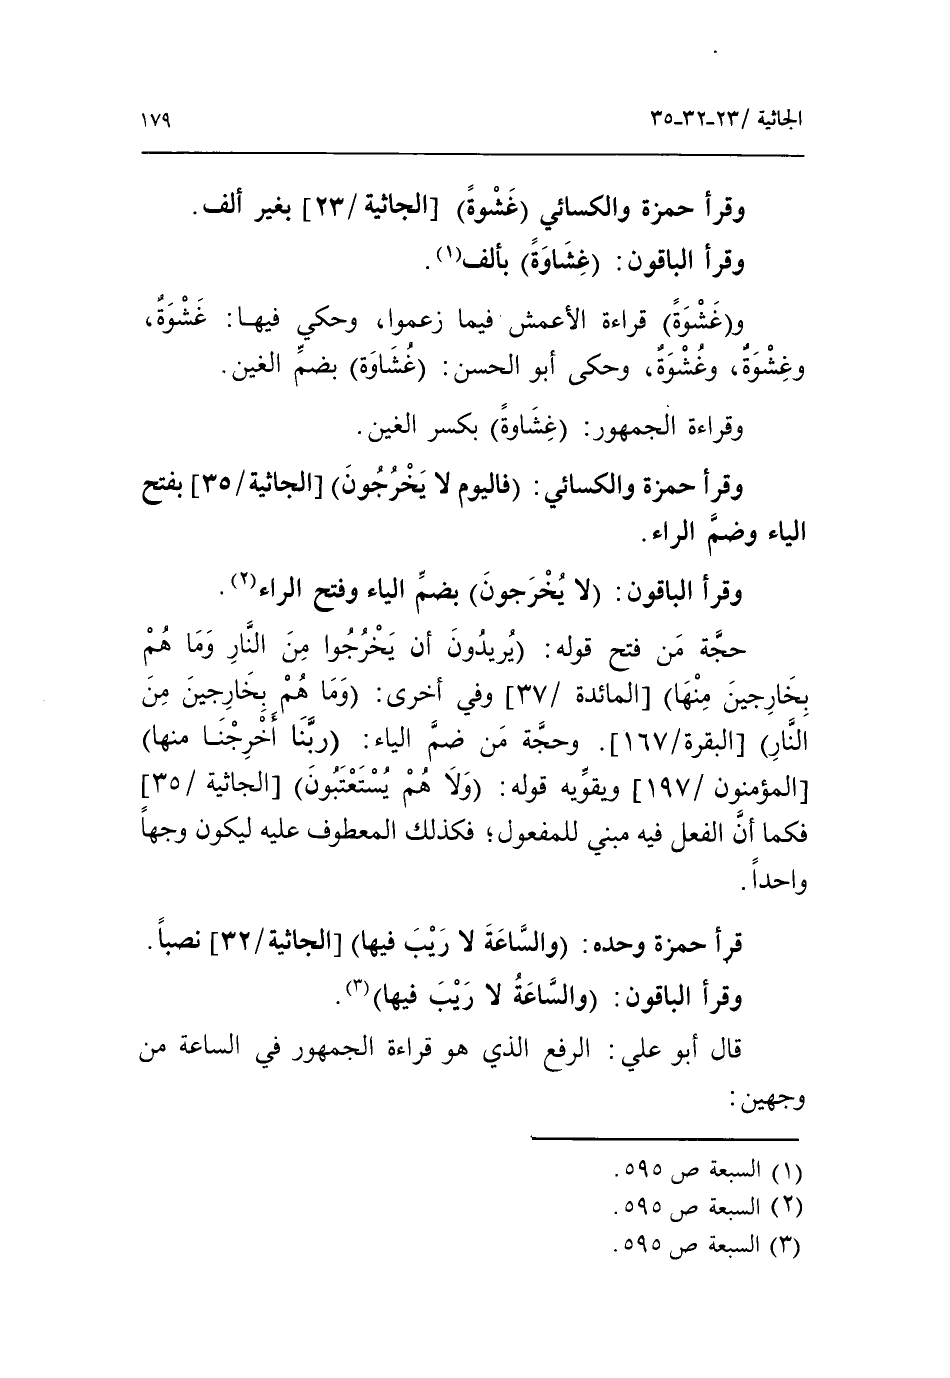 الجاثية /٢٣-٣٢-٣٥ ١٧٩
وقرأ حمزة والكسائي (غَشْوةً) [الجاثية/٢٣] بغير ألف.
وقرأ الباقون: (غِشَاوَةً) بألف(١).
و(غَشْوَةً) قراءة الأعمش فيما زعموا، وحكي فيهـا: غَشْوَةٌ،
وغِشْوَةٌ، وغُشْوَةٌ، وحكى أبو الحسن: (غُشَاوَة) بضمِّ الغين.
وقراءة الجمهور: (غِشَاوةً) بكسر الغين.
وقرأ حمزة والكسائي: (فاليوم لا يَخْرُجُونَ) [الجاثية/٣٥] بفتح
الياء وضمَّ الراء.
وقرأ الباقون: (لا يُخْرَجونَ) بضمِّ الياء وفتح الراء(٢).
حجَّة مَن فتح قوله: (يُريدُونَ أن يَخْرُجُوا مِنَ النَّارِ وَمَا هُمْ
بِخَارِجينَ مِنْهَا) [المائدة /٣٧] وفي أخرى: (وَمَا هُمْ بِخَارِجينَ مِنَ
النَّارِ) [البقرة/١٦٧]. وحجَّة مَن ضمَّ الياء: (ربَّنَا أَخْرِجْنَـا منها)
[المؤمنون /١٩٧] ويقوِّيه قوله: (وَلَا هُمْ يُسْتَعْتَبُونَ) [الجاثية /٣٥]
فكما أنَّ الفعل فيه مبني للمفعول؛ فكذلك المعطوف عليه ليكون وجهاً
واحداً.
قرأ حمزة وحده: (والسَّاعَةَ لا رَيْبَ فيها) [الجاثية/٣٢] نصباً.
وقرأ الباقون: (والسَّاعَةُ لا رَيْبَ فيها)(٣).
قال أبو علي: الرفع الذي هو قراءة الجمهور في الساعة من
وجهين:
(١) السبعة ص ٥٩٥.
(٢) السبعة ص ٥٩٥.
(٣) السبعة ص ٥٩٥.